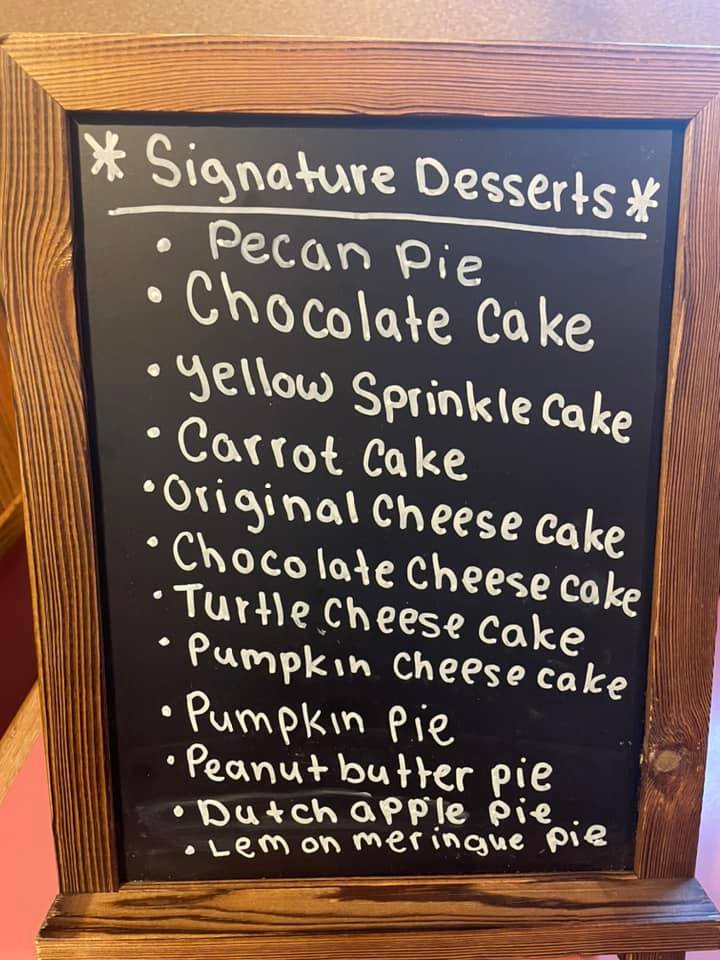 * Signature Desserts *
• Pecan Pie
• Chocolate Cake
• Yellow Sprinkle Cake
• Carrot Cake
• Original Cheese Cake
• Chocolate Cheese cake
• Turtle Cheese Cake
• Pumpkin Cheese cake
• Pumpkin Pie
• Peanut butter pie
• Dutch apple pie
• Lemon meringue pie